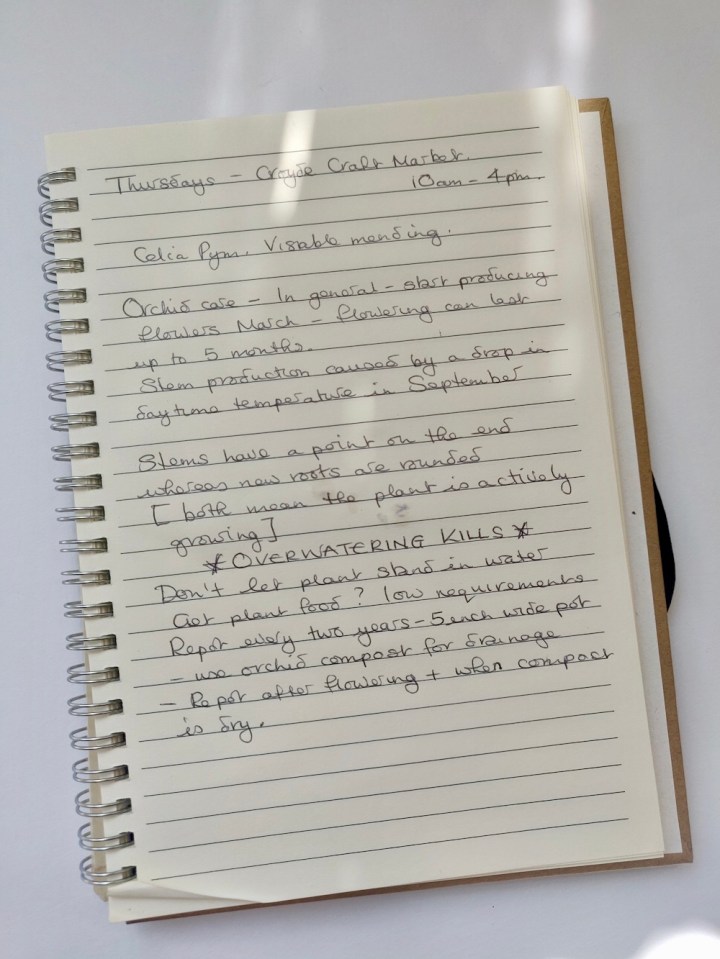 Thursdays - Croyde Craft Market.
10am - 4pm.
Celia Pym. Visable mending.
Orchid care - In general - start producing
flowers March - flowering can last
up to 5 months.
Stem production caused by a drop in
daytime temperature in September
Stems have a point on the end
whereas new roots are rounded
[ both mean the plant is actively
growing]
* OVERWATERING KILLS *
Don't let plant stand in water
Get plant food? low requirements
Repot every two years - 5 inch wide pot
- use orchid compost for drainage
- Repot after flowering + when compost
is dry.